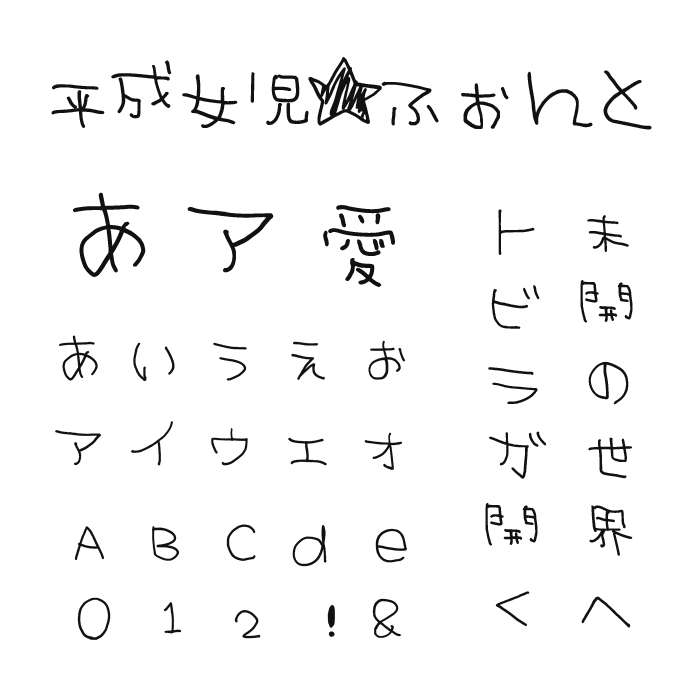 平成女児★ふぉんと
あア愛
あいうえお
アイウエオ
ABCde
012!&
未開の世界へ
トビラガ開く